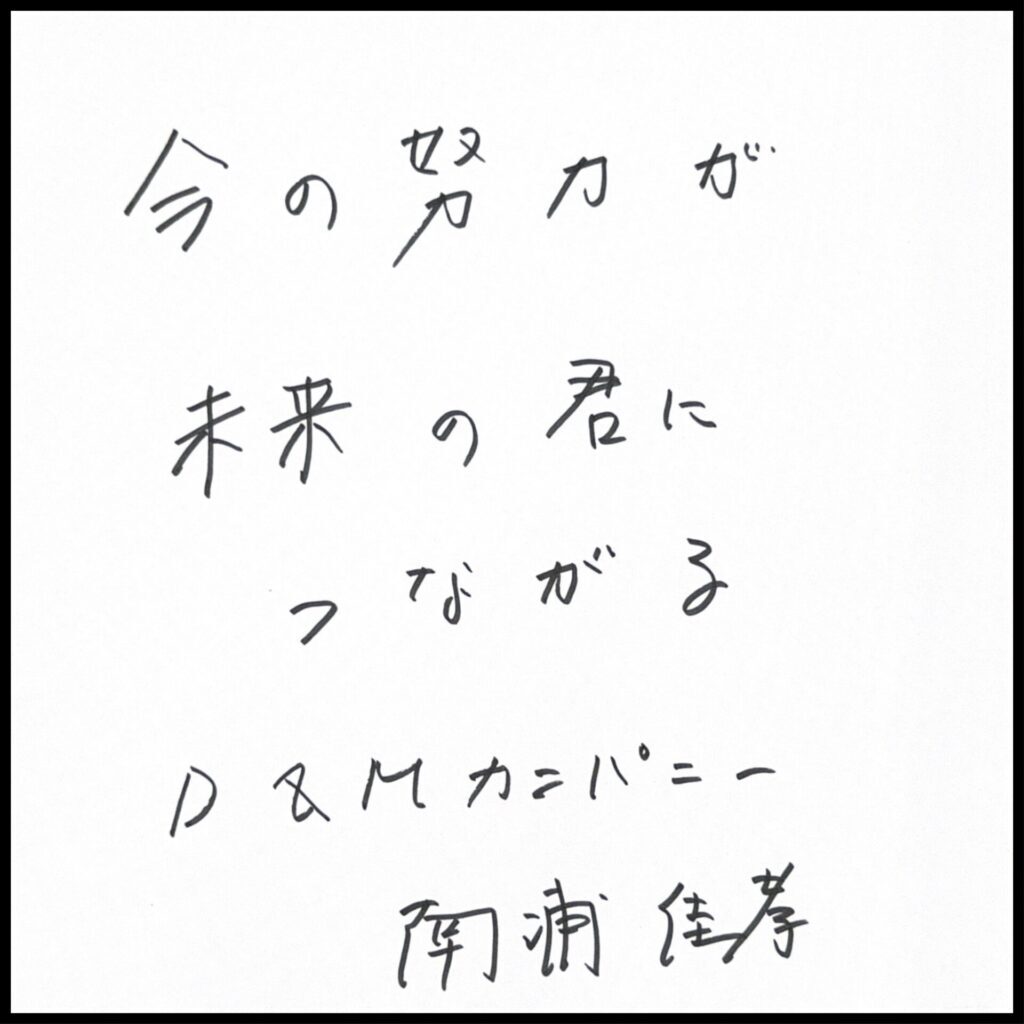 今の努力が
未来の君に
つながる
D&Mカンパニー
南浦佳孝